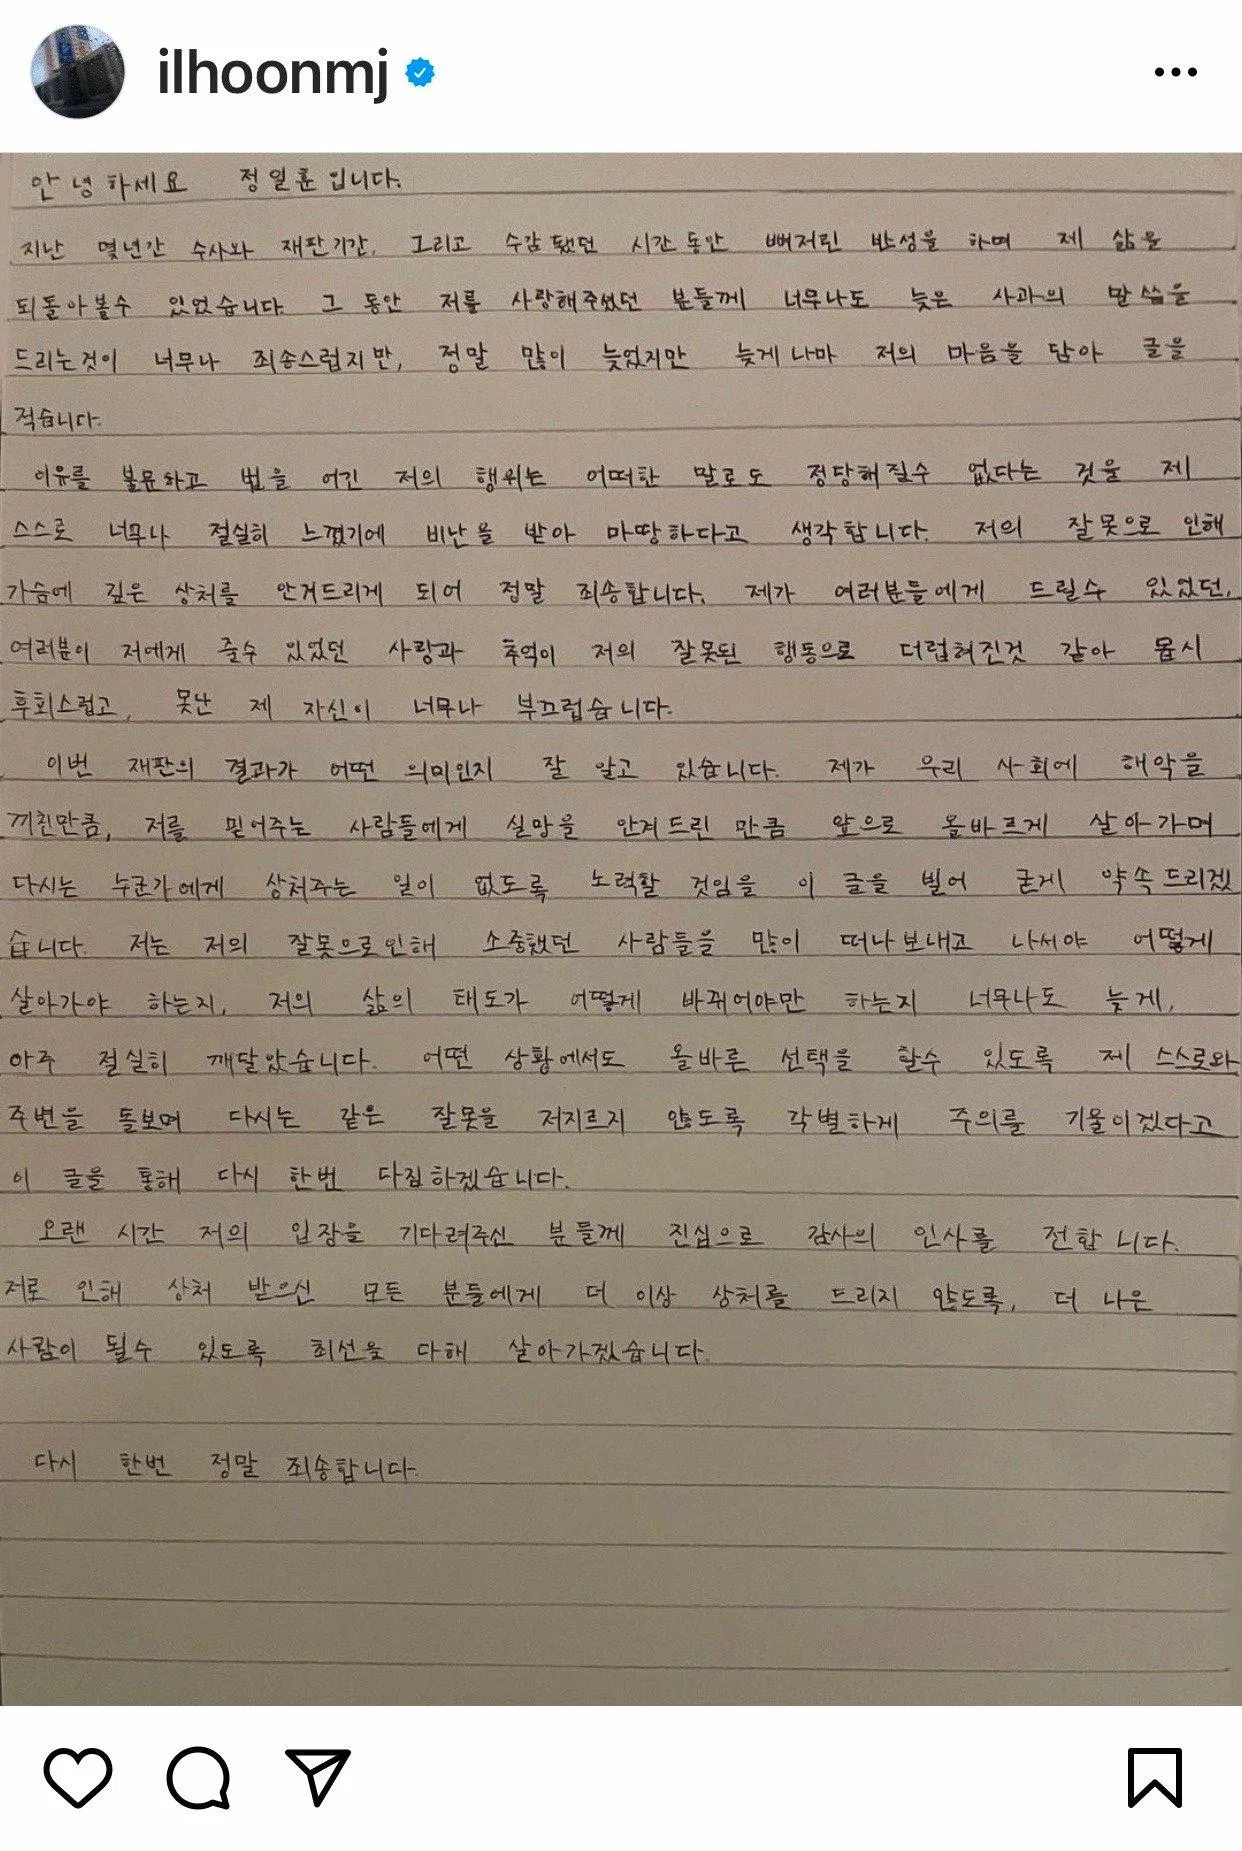 ilhoonmj
안녕하세요 정일훈입니다.
지난 몇년간 수사와 재판기간, 그리고 수감됐던 시간동안 뼈저린 반성을 하며 제 삶을
되돌아볼수 있었습니다. 그 동안 저를 사랑해주셨던 분들께 너무나도 늦은 사과의 말씀을
드리는것이 너무나 죄송스럽지만, 정말 많이 늦었지만 늦게나마 저의 마음을 담아 글을
적습니다.
이유를 불문하고 법을 어긴 저의 행위는 어떠한 말로도 정당해질수 없다는 것을 제
스스로 너무나 절실히 느꼈기에 비난을 받아 마땅하다고 생각합니다. 저의 잘못으로 인해
가슴에 깊은 상처를 안겨드리게 되어 정말 죄송합니다. 제가 여러분들에게 드릴수 있었던,
여러분이 저에게 줄수 있었던 사랑과 추억이 저의 잘못된 행동으로 더럽혀진것 같아 몹시
후회스럽고, 못난 제 자신이 너무나 부끄럽습니다.
이번 재판의 결과가 어떤 의미인지 잘 알고 있습니다. 제가 우리 사회에 해악을
끼친만큼, 저를 믿어주는 사람들에게 실망을 안겨드린 만큼 앞으로 올바르게 살아가며
다시는 누군가에게 상처주는 일이 없도록 노력할 것임을 이 글을 빌어 굳게 약속드리겠
습니다. 저는 저의 잘못으로인해 소중했던 사람들을 많이 떠나보내고 나서야 어떻게
살아가야 하는지, 저의 삶의 태도가 어떻게 바뀌어야만 하는지 너무나도 늦게,
아주 절실히 깨달았습니다. 어떤 상황에서도 올바른 선택을 할수 있도록 제 스스로와
주변을 돌보며 다시는 같은 잘못을 저지르지 않도록 각별하게 주의를 기울이겠다고
이 글을 통해 다시 한번 다짐하겠습니다.
오랜 시간 저의 입장을 기다려주신 분들께 진심으로 감사의 인사를 전합니다.
저로 인해 상처 받으신 모든 분들에게 더 이상 상처를 드리지 않도록, 더 나은
사람이 될수 있도록 최선을 다해 살아가겠습니다.
다시 한번 정말 죄송합니다.